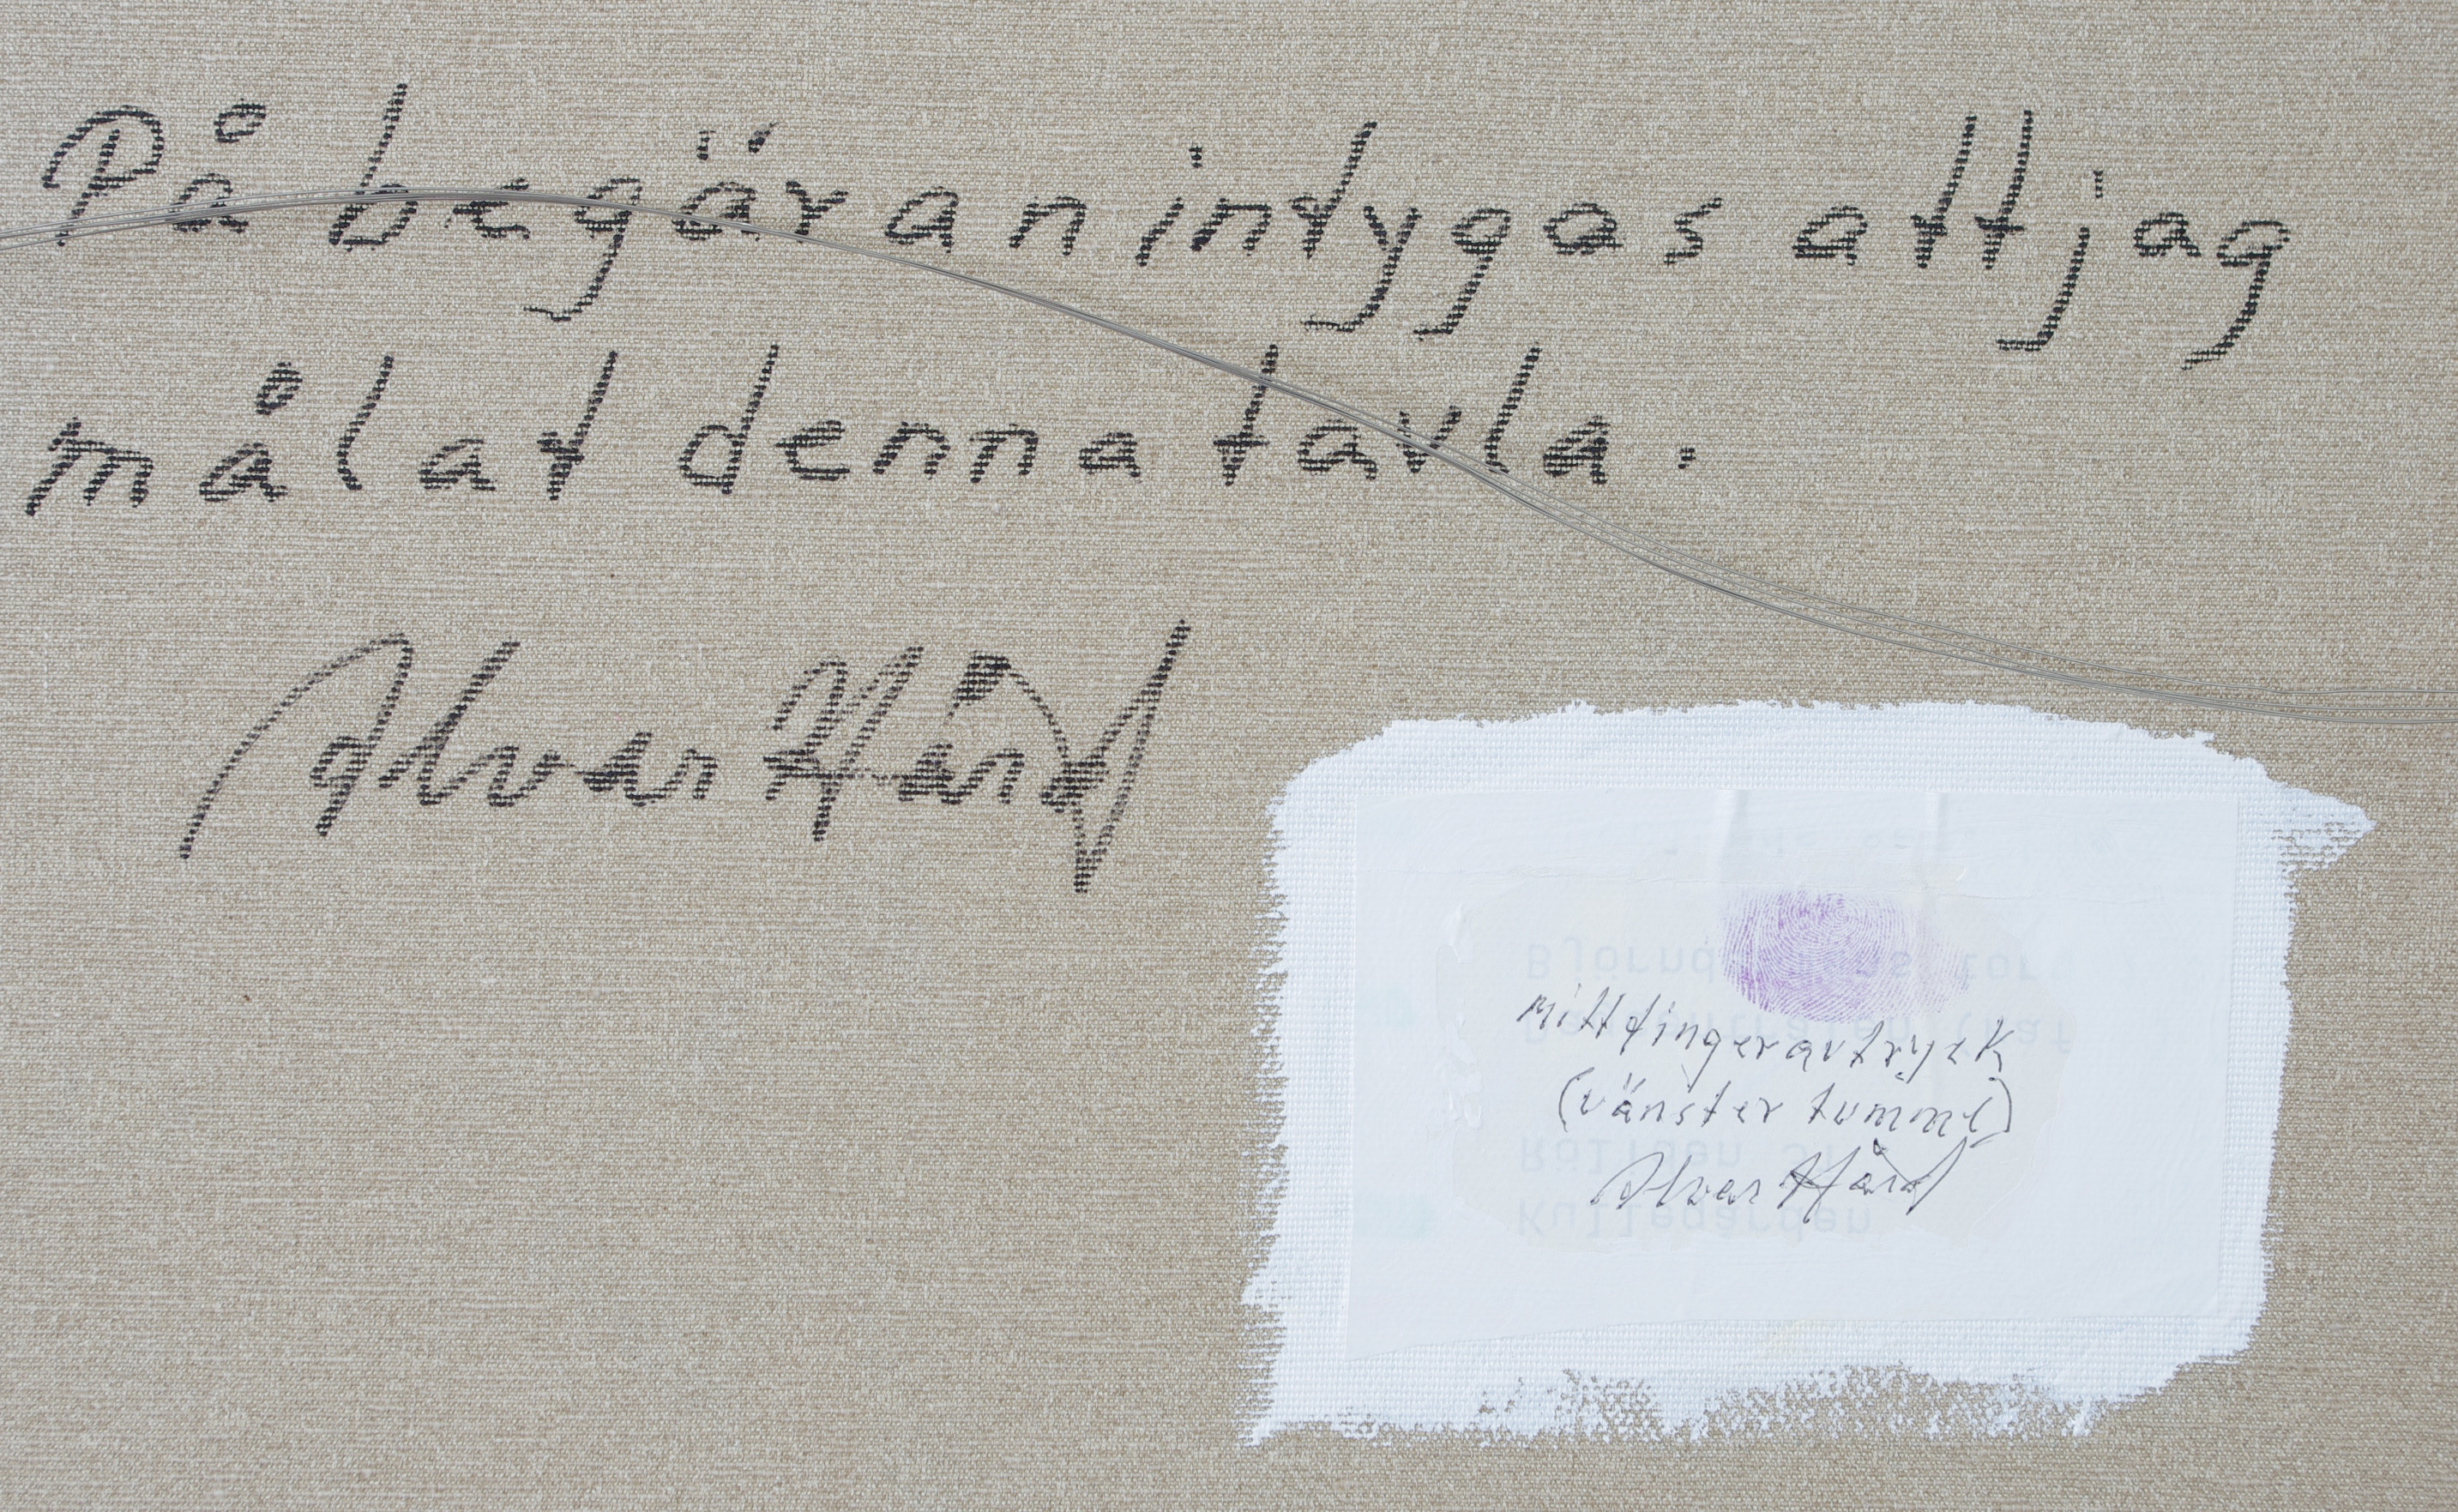 På begäran intygas att jag
målat denna tavla.
Alvar Hård
Mitt fingeravtryck
(vänster tumme)
Alvar Hård
Kullegården